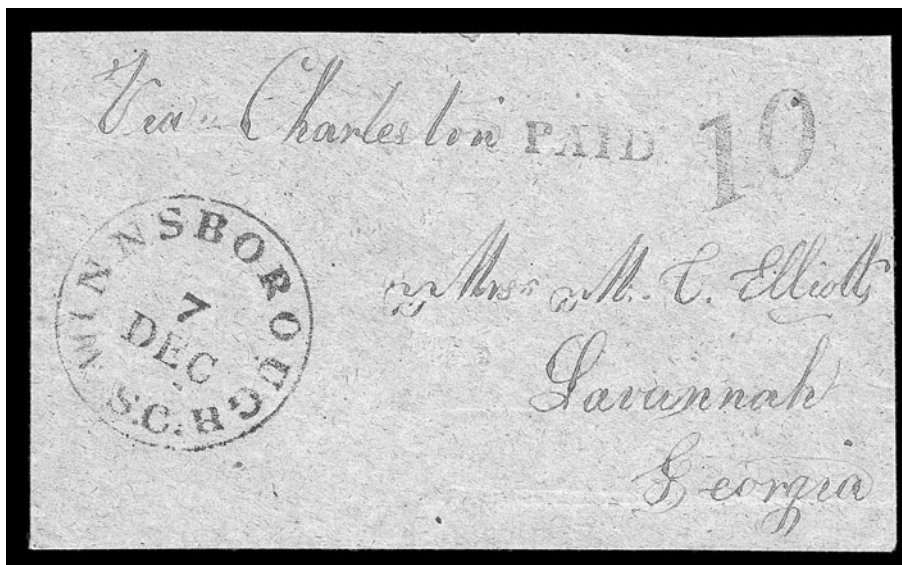 Via Charleston PAID 10
WINNSBOROUGH
7
DEC
S.C.
Miss M. C. Elliott
Savannah
Georgia